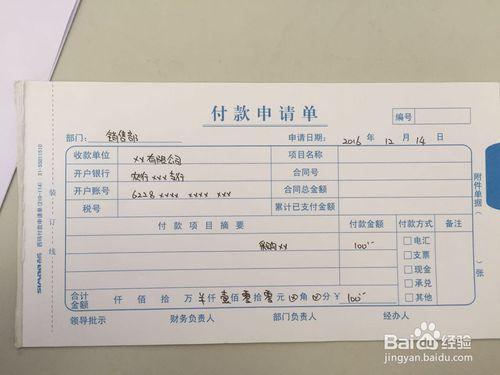 付款申请单
编号
部门：销售部 申请日期：2016 年 12 月 14 日
收款单位 xx有限公司 项目名称
开户银行 农行xxx支行 合同号
开户账号 6228 xxxx xxxx xxx 合同总金额
税号 累计已支付金额
付款项目摘要 付款金额 付款方式 备注
采购xx 100 电汇
支票
现金
承兑
其他
合计金额 仟 佰 拾 万 仟 壹佰 零拾 零元 角 分 ¥ 100
领导批示 财务负责人 部门负责人 经办人
附件单据 张
装订线
Baidu经验
jingyan.baidu.com